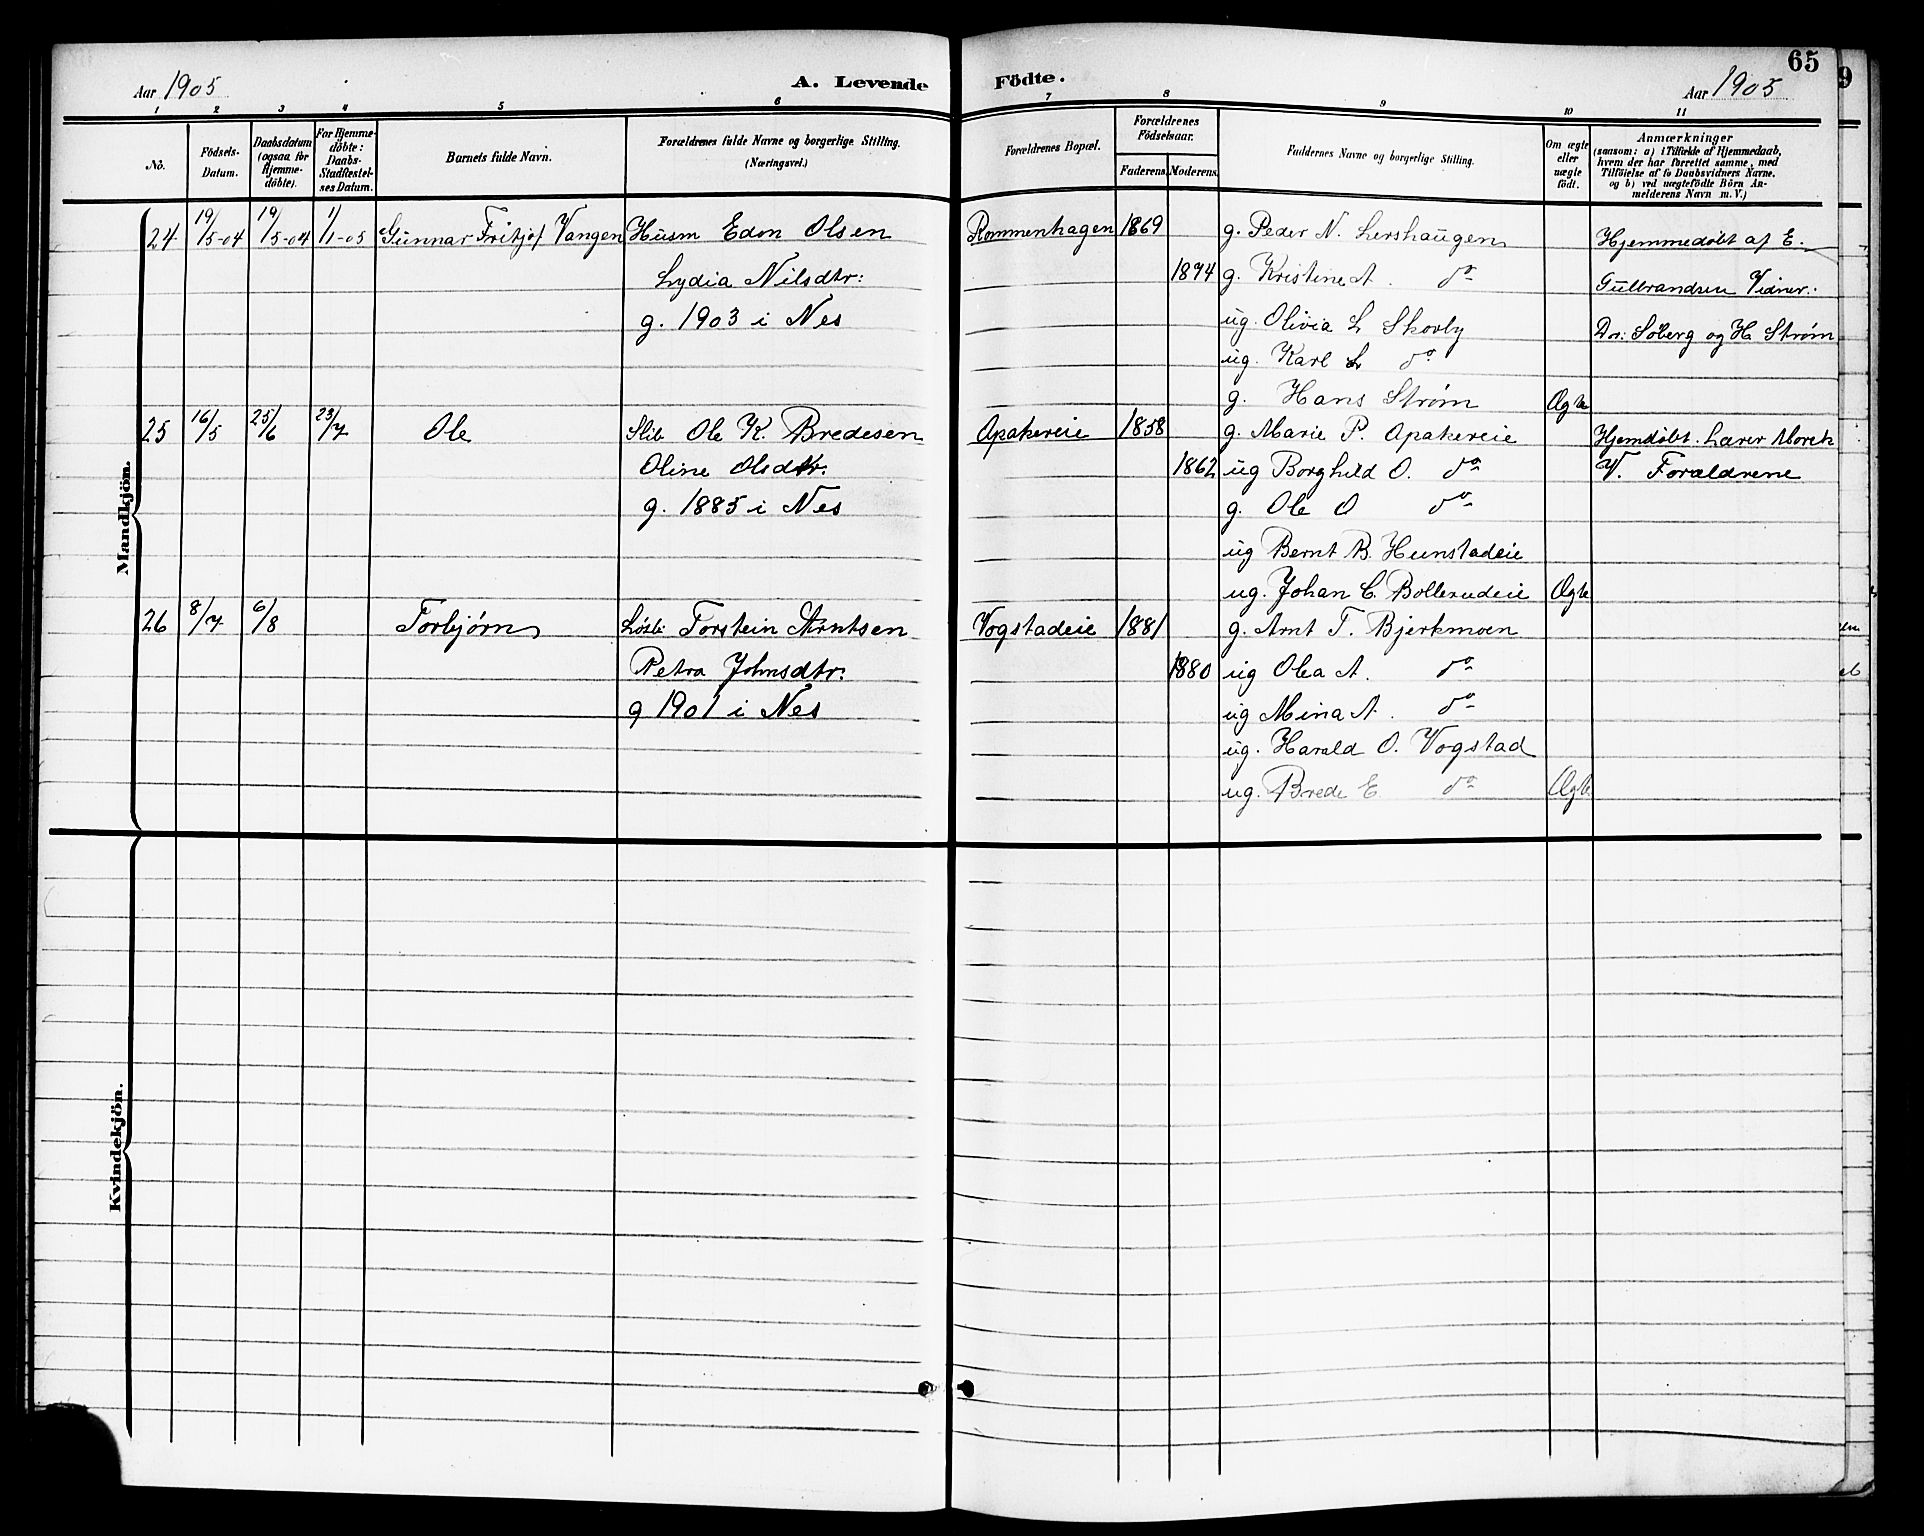 65
Aar 1905
A. Levende Födte.
Aar 1905
1 2 3 4 5 6 7 8 9 10 11
No.
Födsels-
Datum.
Daabsdatum
(ogsaa for
Hjemme-
döbte).
For Hjemme-
döbte:
Daabs-
Stadfæstel-
ses Datum.
Barnets fulde Navn.
Forældrenes fulde Navne og borgerlige Stilling.
(Næringsvei.)
Forældrenes Bopæl.
Forældrenes
Födselsaar.
Faderens.
Moderens.
Faddernes Navne og borgerlige Stilling.
Om ægte
eller
uægte
födt.
Anmærkninger
(saasom: a) i Tilfælde af Hjemmedaab,
hvem der har forrettet samme, med
Tilföielse af to Daabsvidners Navne,
og b) ved uægtefödte Börn An-
melderens Navn m. V.)
Mandkjön.
24 19/5-04 19/5-04 1/1-05 Gunnar Fritjof Vangen Husm Edon Olsen Rommenhagen 1869 g. Peder N. Lershaugen Hjemmedøbt af E.
Lydia Nilsdtr: 1874 g. Kristine A. do Gulbrandsen Vidner:
g. 1903 i Nes ug. Olivia L Skovly Dr: Søberg og H. Strøm
ug. Karl L do
g. Hans Strøm Ægte
25 16/5 25/6 23/7 Ole Slib Ole K. Bredesen Apakereie 1858 g. Marie P. Apakereie Hjemdøbt. Lærer Morek
Oline Olsdtr. 1862 ug Borghild O. do V. Forældrene
g. 1885 i Nes g. Ole O do
ug Bernt B. Hunstadeie
ug. Johan C. Bollerudeie Ægte
26 8/7 6/8 Torbjørn Løsb: Torstein Arntsen Vogstadeie 1881 g. Arnt T. Bjerkmoen
Petra Johnsdtr: 1880 ug Olea A. do
g 1901 i Nes ug Mina A. do
ug. Harald O. Vogstad
ug. Brede E do Ægte
Kvindekjön.